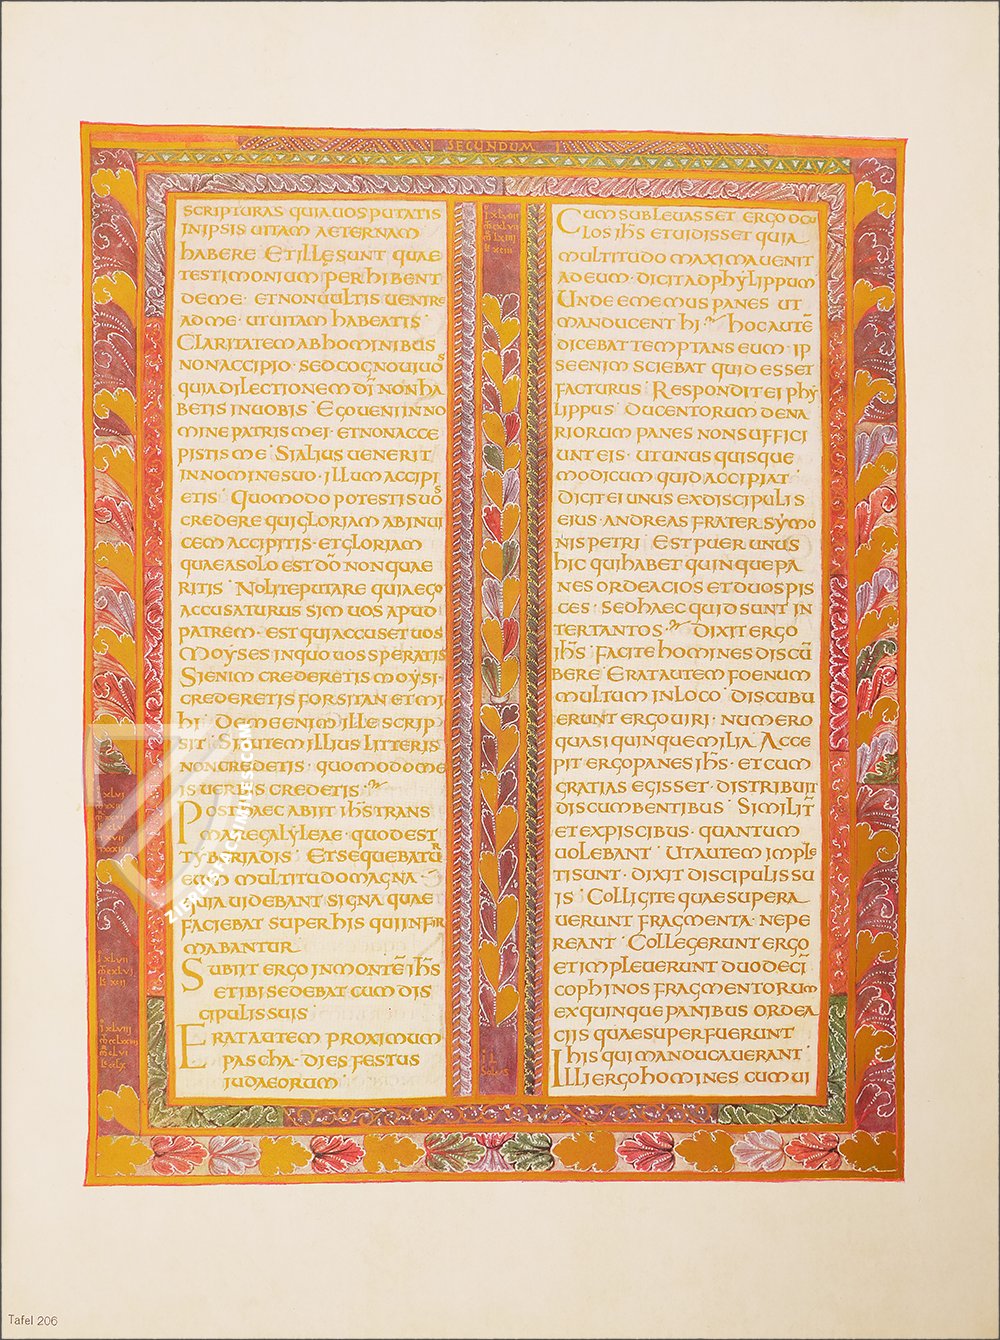 SECUNDUM
SCRIPTURAS QUIA UOS PUTATIS
INIPSIS UITAM AETERNAM
HABERE ET ILLĘ SUNT QUAE
TESTIMONIUM PERHIBENT
DE ME · ET NON UULTIS UENIRE
AD ME · UT UITAM HABEATIS
CLARITATEM AB HOMINIBUS
NON ACCIPIO · SED COGNOUI UOS
QUIA DILECTIONEM DĪ NON HA
BETIS IN UOBIS · EGO UENI IN NO
MINE PATRIS MEI · ET NON ACCE
PISTIS ME · SI ALIUS UENERIT
IN NOMINE SUO · ILLUM ACCIPI
ETIS · QUOMODO POTESTIS UOS
CREDERE QUI GLORIAM AB INUI
CEM ACCIPITIS · ET GLORIAM
QUAE A SOLO EST DŌ NON QUAE
RITIS · NOLITE PUTARE QUIA EGO
ACCUSATURUS SIM UOS APUD
PATREM · EST QUI ACCUSET UOS
MOYSES IN QUO UOS SPERATIS
SI ENIM CREDERETIS MOYSI ·
CREDERETIS FORSITAN ET MI
HI · DE ME ENIM ILLE SCRIP
SIT · SI AUTEM ILLIUS LITTERIS
NON CREDETIS · QUOMODO ME
IS UERBIS CREDETIS ·
POST HAEC ABIIT IH̄S TRANS
MARE GALYLEAE · QUOD EST
TYBERIADIS · ET SEQUEBATUR
EUM MULTITUDO MAGNA ·
QUIA UIDEBANT SIGNA QUAE
FACIEBAT SUPER HIS QUI INFIR
MABANTUR
SUBIIT ERGO IN MONTĒ IH̄S
ET IBI SEDEBAT CUM DIS
CIPULIS SUIS
ERAT AUTEM PROXIMUM
PASCHA · DIES FESTUS
IUDAEORUM
CUM SUBLEUASSET ERGO OCU
LOS IH̄S ET UIDISSET QUIA
MULTITUDO MAXIMA UENIT
AD EUM · DICIT AD PHYLIPPUM
UNDE EMEMUS PANES UT
MANDUCENT HI · HOC AUTĒ
DICEBAT TEMPTANS EUM · IP
SE ENIM SCIEBAT QUID ESSET
FACTURUS · RESPONDIT EI PHY
LIPPUS · DUCENTORUM DENA
RIORUM PANES NON SUFFICI
UNT EIS · UT UNUS QUISQUE
MODICUM QUID ACCIPIAT ·
DICIT EI UNUS EX DISCIPULIS
EIUS · ANDREAS FRATER SYMO
NIS PETRI · EST PUER UNUS
HIC QUI HABET QUINQUE PA
NES ORDEACIOS ET DUOS PIS
CES · SED HAEC QUID SUNT IN
TER TANTOS · DIXIT ERGO
IH̄S · FACITE HOMINES DISCŪ
BERE · ERAT AUTEM FOENUM
MULTUM IN LOCO · DISCUBU
ERUNT ERGO UIRI · NUMERO
QUASI QUINQUE MILIA · ACCE
PIT ERGO PANES IH̄S · ET CUM
GRATIAS EGISSET · DISTRIBUIT
DISCUMBENTIBUS · SIMILIT̄
ET EX PISCIBUS · QUANTUM
UOLEBANT · UT AUTEM IMPLE
TI SUNT · DIXIT DISCIPULIS SU
IS · COLLIGITE QUAE SUPERA
UERUNT FRAGMENTA · NE PE
REANT · COLLEGERUNT ERGO
ET IMPLEUERUNT DUODECI
COPHINOS FRAGMENTORUM
EX QUINQUE PANIBUS ORDEA
CIIS QUAE SUPERFUERUNT
HIS QUI MANDUCAUERANT ·
ILLI ERGO HOMINES CUM UI
ZIEREIS FACSIMILES.COM
Tafel 206